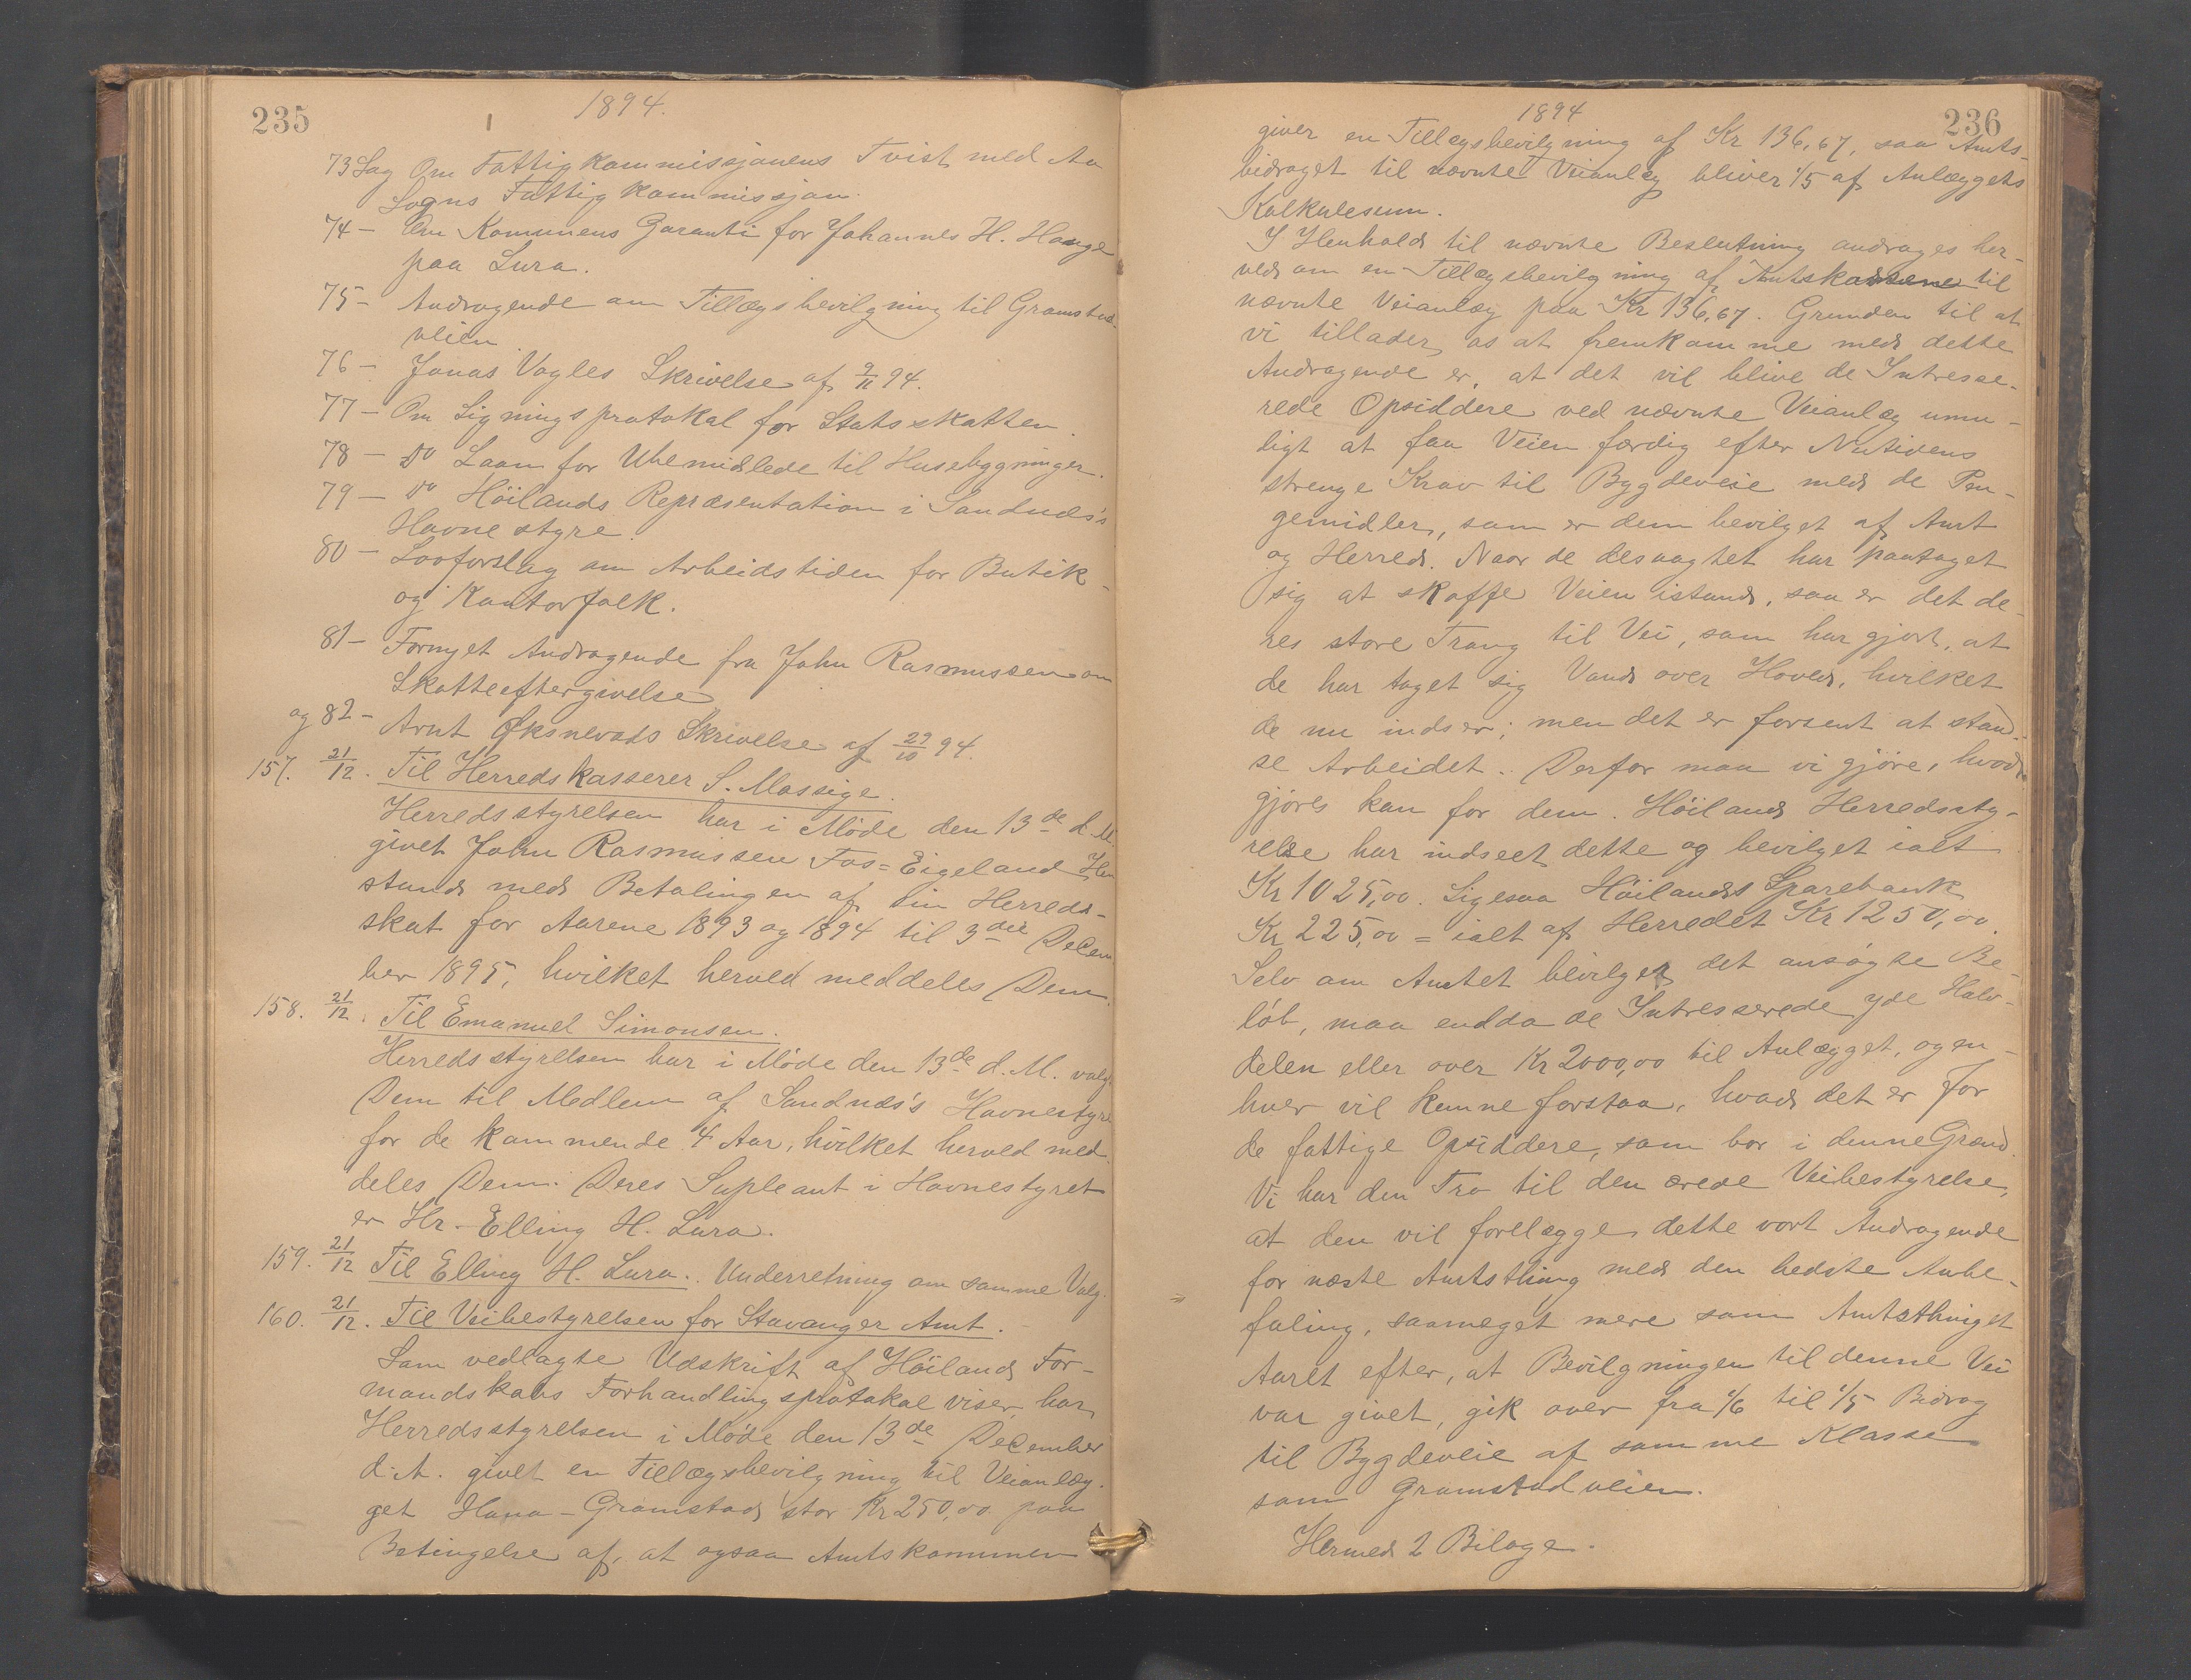 235
1894.
73 Sag Om Fattigkommissjonens Tvist med Aa
Sogns Fattigkommissjon.
74 — Om Komunens Garanti for Johannes H. Hauge
paa Lura.
75 — Andragende om Tillægsbevilgning til Gramstad-
veien
76 — Jonas Vagles Skrivelse af 9/11 94.
77 — Om Ligningsprotokol for Statsskatten.
78 — Do Laan for Ubemidlede til Husebygninger.
79 — Do Höilands Repræsentation i Sandnæs's
Havnestyre.
80 — Lovforslag om Arbeidstiden for Butik-
og Kontorfolk.
81 — Fornyet Andragende fra John Rasmussen om
Skatteeftergivelse
og 82 — Arnt Öksnevads Skrivelse af 29/10 94.
157. 21/12. Til Herredskasserer S. Massige.
Herredsstyrelsen har i Möde den 13de d. M.
givet John Rasmussen Fos=Eigeland Hen
stand med Betalingen af sin Herreds-
skat for Aarene 1893 og 1894 til 3die Decem
ber 1895, hvilket herved meddeles Dem.
158. 21/12. Til Emanuel Simonsen.
Herredsstyrelsen har i Möde den 13de d. M. valgt
Dem til Medlem af Sandnæs's Havnestyre
for de kommende 4 Aar, hvilket herved med
deles Dem. Deres Supleant i Havnestyret
er Hr. Elling H. Lura.
159. 21/12 Til Elling H. Lura. Underretning om samme Valg.
160. 21/12. Til Veibestyrelsen for Stavanger Amt.
Som vedlagte Udskrift af Höilands For-
mandskabs Forhandlingsprotokol viser, har
Herredsstyrelsen i Möde den 13de December
d. A. givet en Tillægsbevilgning til Veianlæg-
get Hana–Gramstad stor Kr 250,00 paa
Betingelse af, at ogsaa Amtskommunen
1894
236
giver en Tillægsbevilgning af Kr 136,67, saa Amts-
bidraget til nævnte Veianlæg bliver 1/5 af Anlæggets
Kalkulesum.
I Henhold til nævnte Beslutning andrages her-
ved om en Tillægsbevilgning af Amtskassene til
nævnte Veianlæg paa Kr 136,67. Grunden til at
vi tillader os at fremkomme med dette
Andragende er, at det vil blive de Intresse-
rede Opsiddere ved nævnte Veianlæg umu-
ligt at faa Veien færdig efter Nutidens
strenge Krav til Bygdeveie med de Pen-
gemidler, som er dem bevilget af Amt
og Herred. Naar de desuagtet har paataget
sig at skaffe Veien istand, saa er det de-
res store Trang til Vei, som har gjort, at
de har taget sig Vand over Hoved, hvilket
de nu indser; men det er forsent at stand-
se Arbeidet. Derfor maa vi gjöre, hvad
gjöres kan for dem. Höilands Herredssty-
relse har indseet dette og bevilget ialt
Kr 1025,00. Ligesaa Höilands Sparebank
Kr 225,00 = ialt af Herredet Kr 1250,00.
Selv om Amtet bevilger det ansögte Be-
löb, maa endda de Intresserede yde Halv-
delen eller over Kr 2000,00 til Anlægget, og en-
hver vil kunne forstaa, hvad det er for
de fattige Opsiddere, som bor i denne Grænd.
Vi har den Tro til den ærede Veibestyrelse,
at den vil forelægge dette vort Andragende
for næste Amtsthing med den bedste Anbe-
faling, saameget mere som Amtsthinget
Aaret efter, at Bevilgningen til denne Vei
var givet, gik over fra 1/6 til 1/5 Bidrag
til Bygdeveie af samme Klasse
som Gramstadveien.
Hermed 2 Bilage.